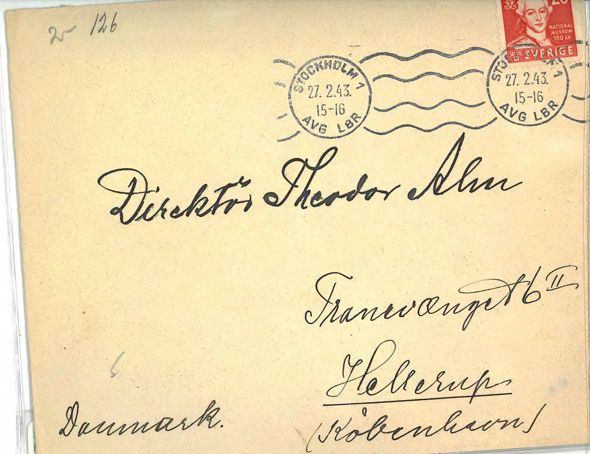 2- 126
20
NATIONAL
MUSEUM
150 ÅR
SVERIGE
STOCKHOLM 1
27. 2.43.
15-16
AVG LBR
STOCKHOLM 1
27. 2.43.
15-16
AVG LBR
Direktör Theodor Alm
Tranevænget 6 II
Hellerup
(København)
Danmark.